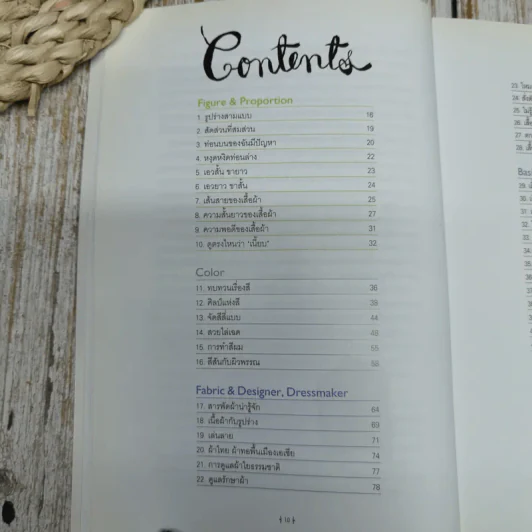 Contents
Figure & Proportion
1. รูปร่างสามแบบ 18
2. สัดส่วนที่สมส่วน 19
3. ท่อนบนของฉันมีปัญหา 20
4. หงุดหงิดท่อนล่าง 22
5. เอวสั้น ขายาว 23
6. เอวยาว ขาสั้น 24
7. เส้นสายของเสื้อผ้า 25
8. ความสั้นยาวของเสื้อผ้า 27
9. ความพอดีของเสื้อผ้า 31
10. ดูตรงไหนว่า "เนี้ยบ" 32
Color
11. ทบทวนเรื่องสี 36
12. ศิลป์แห่งสี 39
13. จัดสีสี่แบบ 44
14. สวยไล่เฉด 48
15. การทำสีผม 55
16. สีสันกับผิวพรรณ 59
Fabric & Designer, Dressmaker
17. สารพัดผ้าน่ารู้จัก 64
18. เนื้อผ้ากับรูปร่าง 69
19. เล่นลาย 71
20. ผ้าไทย ผ้าทอพื้นเมืองเอเชีย 74
21. การดูแลผ้าใยธรรมชาติ 77
22. ดูแลรักษาผ้า 78
{ 10 }
23.
24.
25.
26.
27.
28.
29.
30.
31.